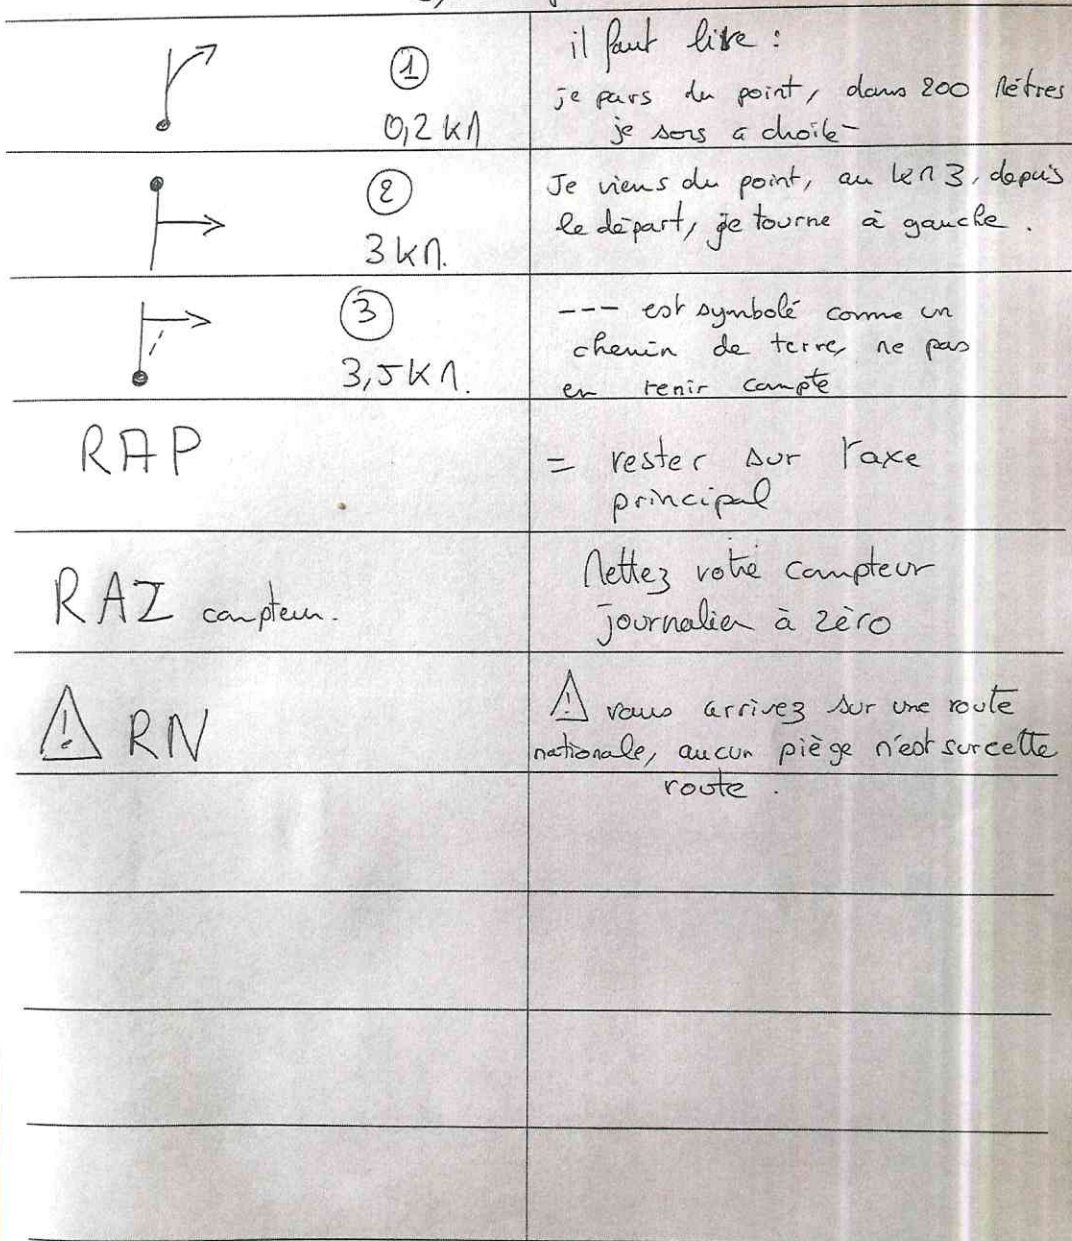 ①
0,2 kM
il faut lire :
je pars du point, dans 200 Mètres
je sors a droite-
②
3 kM.
Je viens du point, au km 3, depuis
le départ, je tourne à gauche.
③
3,5 kM.
--- est symbolé comme un
chemin de terre, ne pas
en tenir compte
RAP
= rester sur l'axe
principal
RAZ compteur.
Mettez votre compteur
journalier à zèro
! RN
! vous arrivez sur une route
nationale, aucun piège n'est sur cette
route.